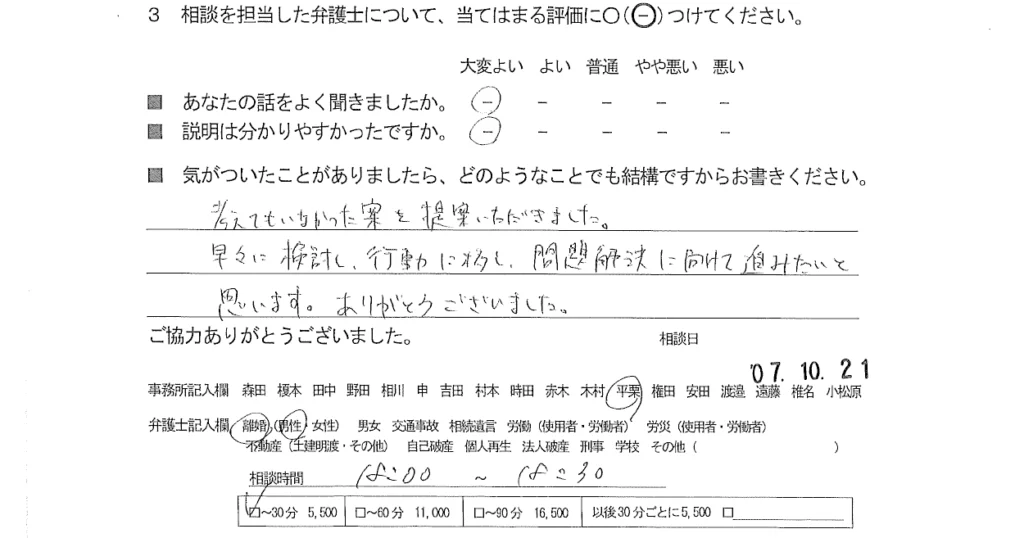 3 相談を担当した弁護士について、当てはまる評価に○(⊖)つけてください。
大変よい よい 普通 やや悪い 悪い
■ あなたの話をよく聞きましたか。 − − − − −
■ 説明は分かりやすかったですか。 − − − − −
■ 気がついたことがありましたら、どのようなことでも結構ですからお書きください。
考えてもいなかった案を提案いただきました。
早々に検討し、行動に移し、問題解決に向けて進みたいと
思います。ありがとうございました。
ご協力ありがとうございました。 相談日
'07.10.21
事務所記入欄 森田 榎本 田中 野田 相川 申 吉田 村本 時田 赤木 木村 平栗 権田 安田 渡邉 遠藤 椎名 小松原
弁護士記入欄 離婚(男性・女性) 男女 交通事故 相続遺言 労働(使用者・労働者) 労災(使用者・労働者)
不動産(土建明渡・その他) 自己破産 個人再生 法人破産 刑事 学校 その他( )
相談時間 ~
□~30分 5,500 □~60分 11,000 □~90分 16,500 以後30分ごとに5,500 □